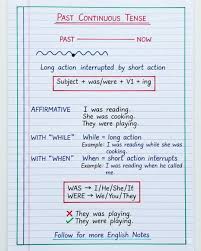 PAST CONTINUOUS TENSE
PAST NOW
Long action interrupted by short action
Subject + was/were + V1 + ing
AFFIRMATIVE I was reading.
She was cooking.
They were playing.
WITH "WHILE" While = long action
Example: I was reading while she
was cooking.
WITH "WHEN" When = short action interrupts
Example: I was reading when he called
me.
WAS → I/He/She/It
WERE → We/You/They
❌ They was playing.
✔ They were playing.
Follow for more English Notes